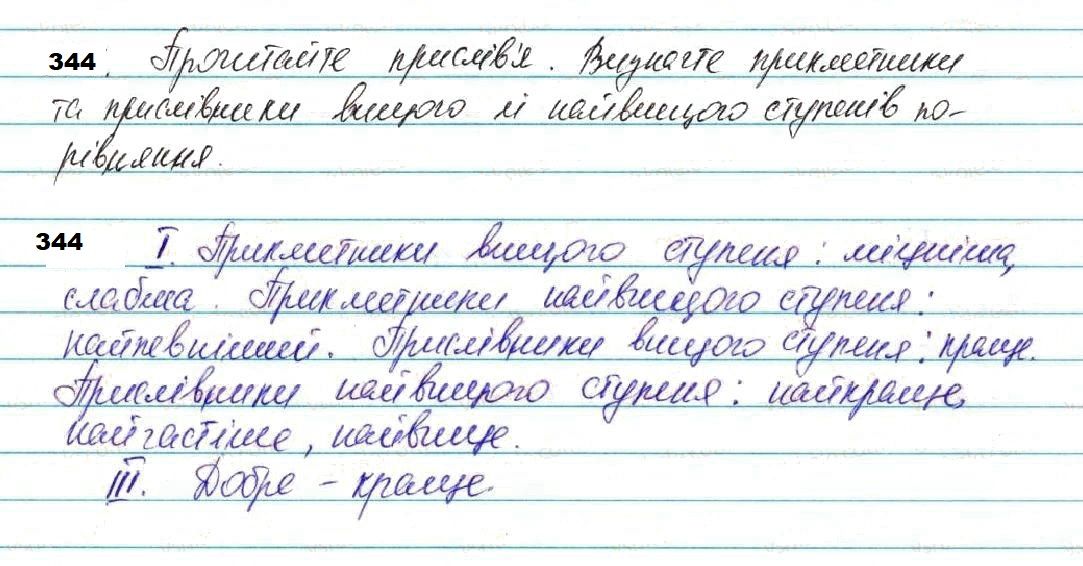 344. Прочитайте прислів'я. Визначте прикметники
та прислівники вищого й найвищого ступенів по-
рівняння.
344 I. Прикметники вищого ступеня: міцніша,
слабша. Прикметники найвищого ступеня:
найпевніший. Прислівники вищого ступеня: краще.
Прислівники найвищого ступеня: найкраще,
найчастіше, найвище.
III. Добре – краще.